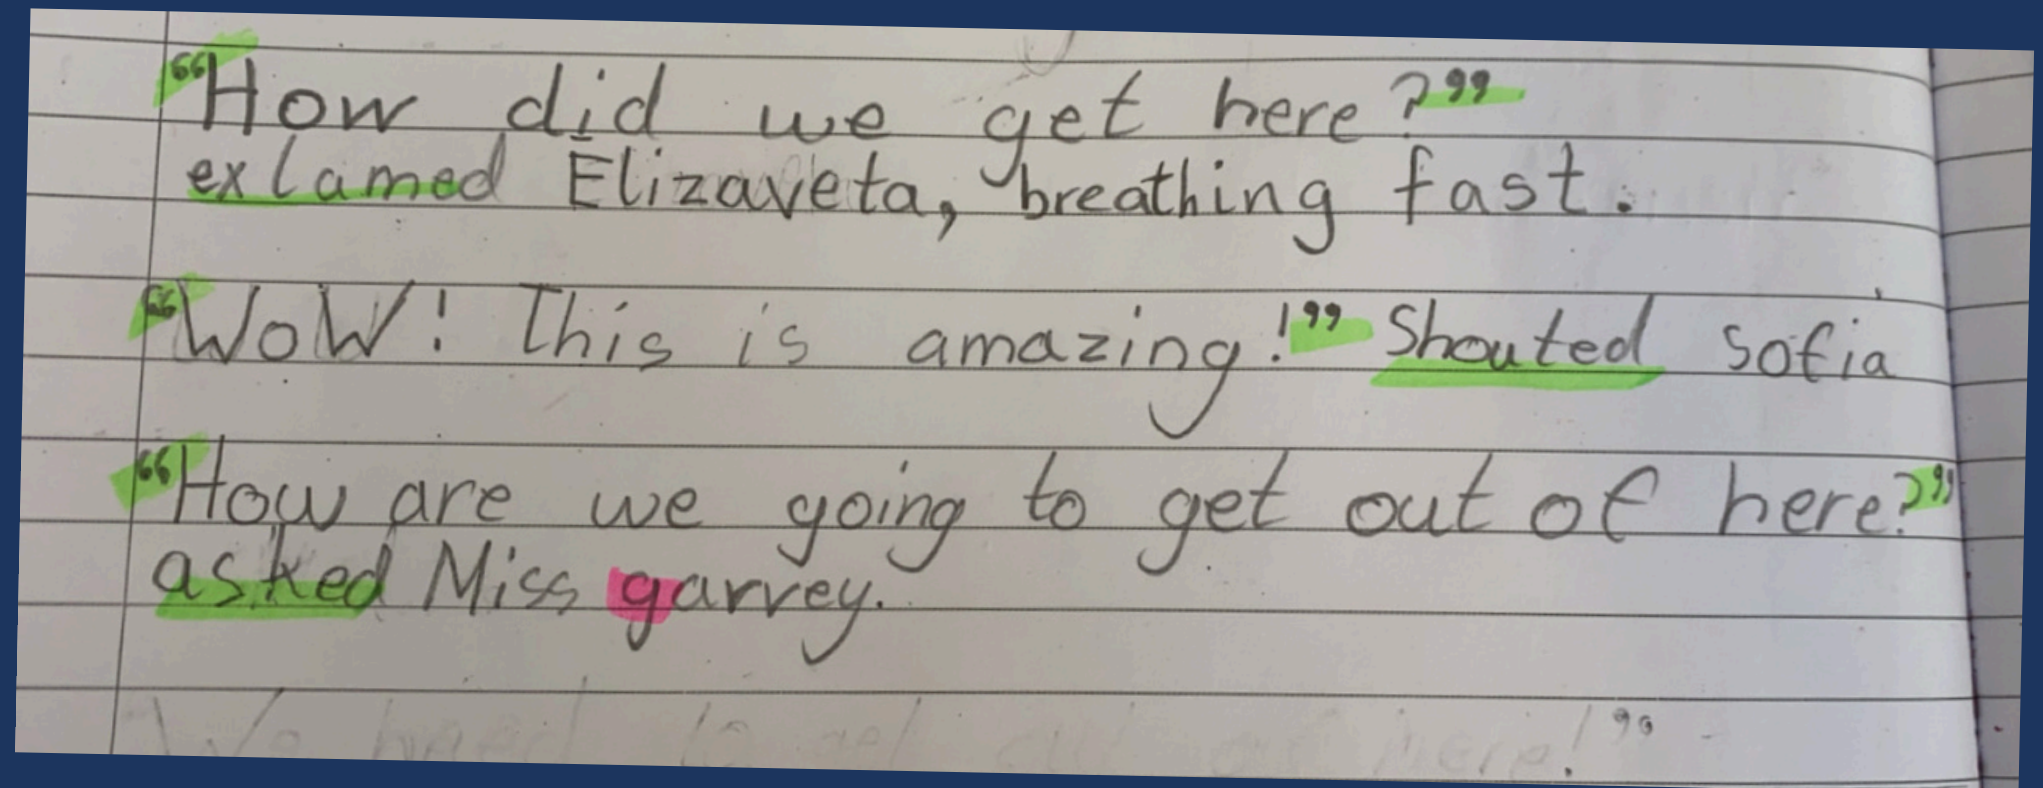 “How did we get here?”
exlamed Elizaveta, breathing fast.
“WoW! This is amazing!” Shouted sofia
“How are we going to get out of here?”
asked Miss garvey.
We need to get out of here!”